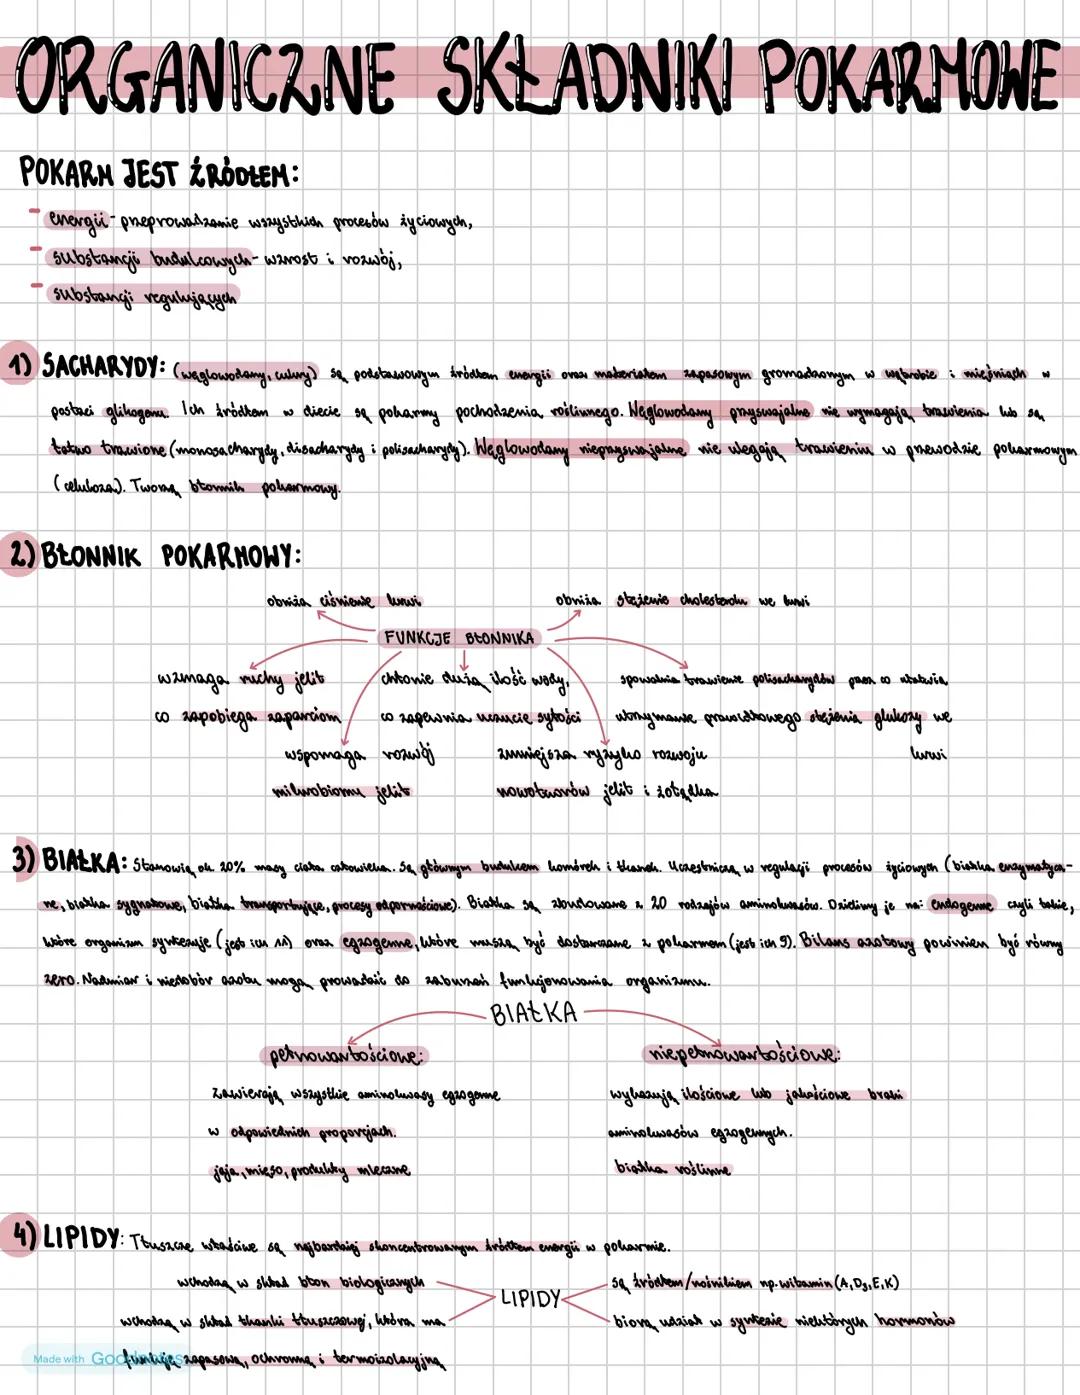 ORGANICZNE SKŁADNIKI POKARMOWE
POKARM JEST ŹRÓDŁEM:
- energii - przeprowadzanie wszystkich procesów życiowych,
- substancji budulcowych - wzrost i rozwój,
- substancji regulujących
1) SACHARYDY: (węglowodany, cukry) są podstawowym źródłem energii oraz materiałem zapasowym gromadzonym w wątrobie i mięśniach w
postaci glikogenu. Ich źródłem w diecie są pokarmy pochodzenia roślinnego. Węglowodany przyswajalne nie wymagają trawienia lub są
łatwo trawione (monosacharydy, disacharydy i polisacharydy). Węglowodany nieprzyswajalne nie ulegają trawieniu w przewodzie pokarmowym
(celuloza). Tworzą błonnik pokarmowy.
2) BŁONNIK POKARMOWY:
obniża ciśnienie krwi
obniża stężenie cholesterolu we krwi
FUNKCJE BŁONNIKA
wzmaga ruchy jelit
co zapobiega zaparciom
chłonie dużą ilość wody,
co zapewnia uczucie sytości
spowalnia trawienie polisacharydów przez co ułatwia
utrzymanie prawidłowego stężenia glukozy we
krwi
wspomaga rozwój
mikrobiomu jelit
zmniejsza ryzyko rozwoju
nowotworów jelit i żołądka
3) BIAŁKA: Stanowią ok. 20% masy ciała człowieka. Są głównym budulcem komórek i tkanek. Uczestniczą w regulacji procesów życiowych (białka enzymatycz-
ne, białka sygnałowe, białka transportujące, procesy odpornościowe). Białka są zbudowane z 20 rodzajów aminokwasów. Dzielimy je na: endogenne czyli takie,
które organizm syntezuje (jest ich 11) oraz egzogenne, które muszą być dostarczane z pokarmem (jest ich 9). Bilans azotowy powinien być równy
zero. Nadmiar i niedobór azotu mogą prowadzić do zaburzeń funkcjonowania organizmu.
BIAŁKA
pełnowartościowe:
zawierają wszystkie aminokwasy egzogenne
w odpowiednich proporcjach.
jaja, mięso, produkty mleczne
niepełnowartościowe:
wykazują ilościowe lub jakościowe braki
aminokwasów egzogennych.
białka roślinne
4) LIPIDY: Tłuszcze właściwe są najbardziej skoncentrowanym źródłem energii w pokarmie.
wchodzą w skład błon biologicznych
wchodzą w skład tkanki tłuszczowej, która ma
funkcję zapasową, ochronną i termoizolacyjną
LIPIDY
są źródłem/nośnikiem np. witamin (A, D₃, E, K)
biorą udział w syntezie niektórych hormonów
Made with Goodnotes